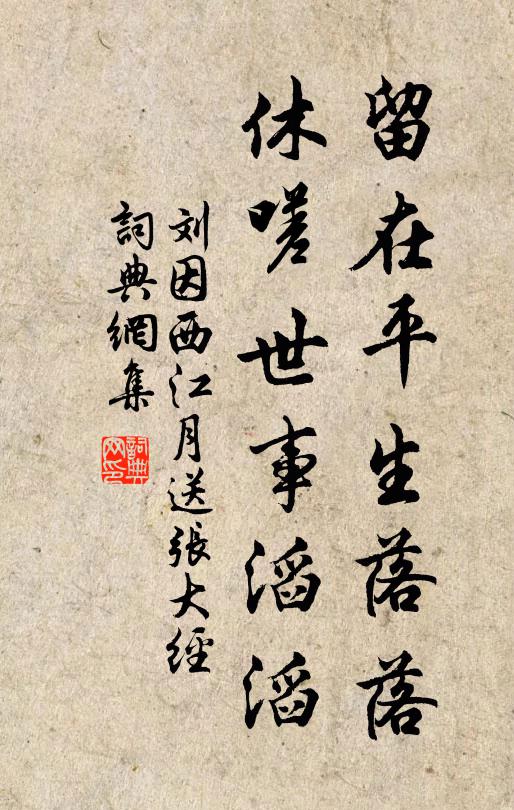 留在平生落落
休嗟世事滔滔
刘因西江月送張大經
詞典網集
詞典网印